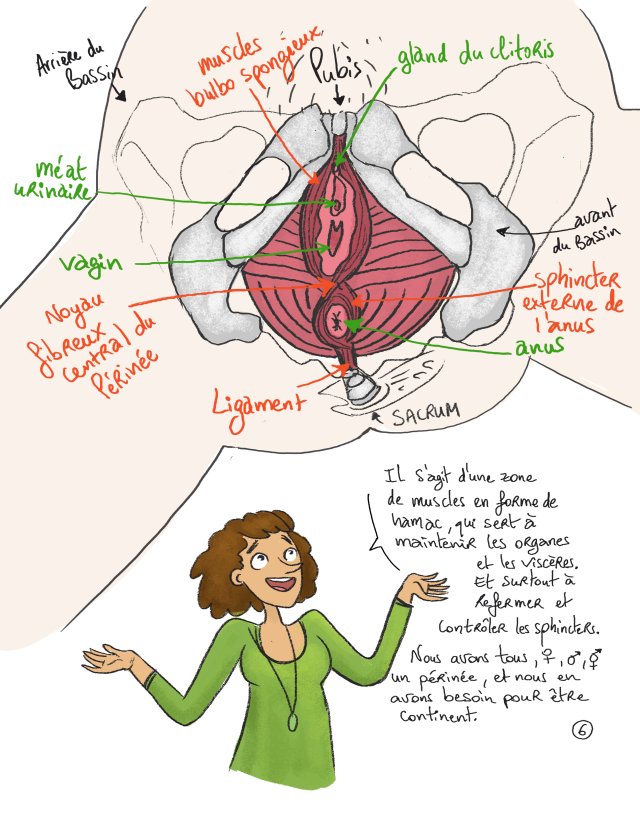 Arrière du
Bassin
muscles
bulbo spongieux
Pubis
gland du clitoris
méat
urinaire
avant
du Bassin
vagin
sphincter
externe de
l'anus
Noyau
fibreux
central du
Périnée
anus
Ligament
SACRUM
Il s'agit d'une zone
de muscles en forme de
hamac, qui sert à
maintenir les organes
et les viscères.
Et surtout à
refermer et
contrôler les sphincters.
Nous avons tous, ♀, ♂, ⚥
un périnée, et nous en
avons besoin pour être
continent.
6